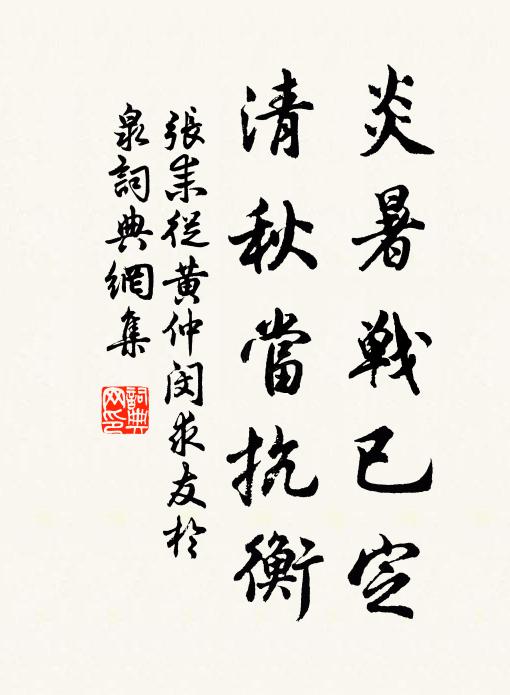 炎暑戰已定
清秋當抗衡
張耒從黃仲閔求友於
泉詞典網集
詞典
网印